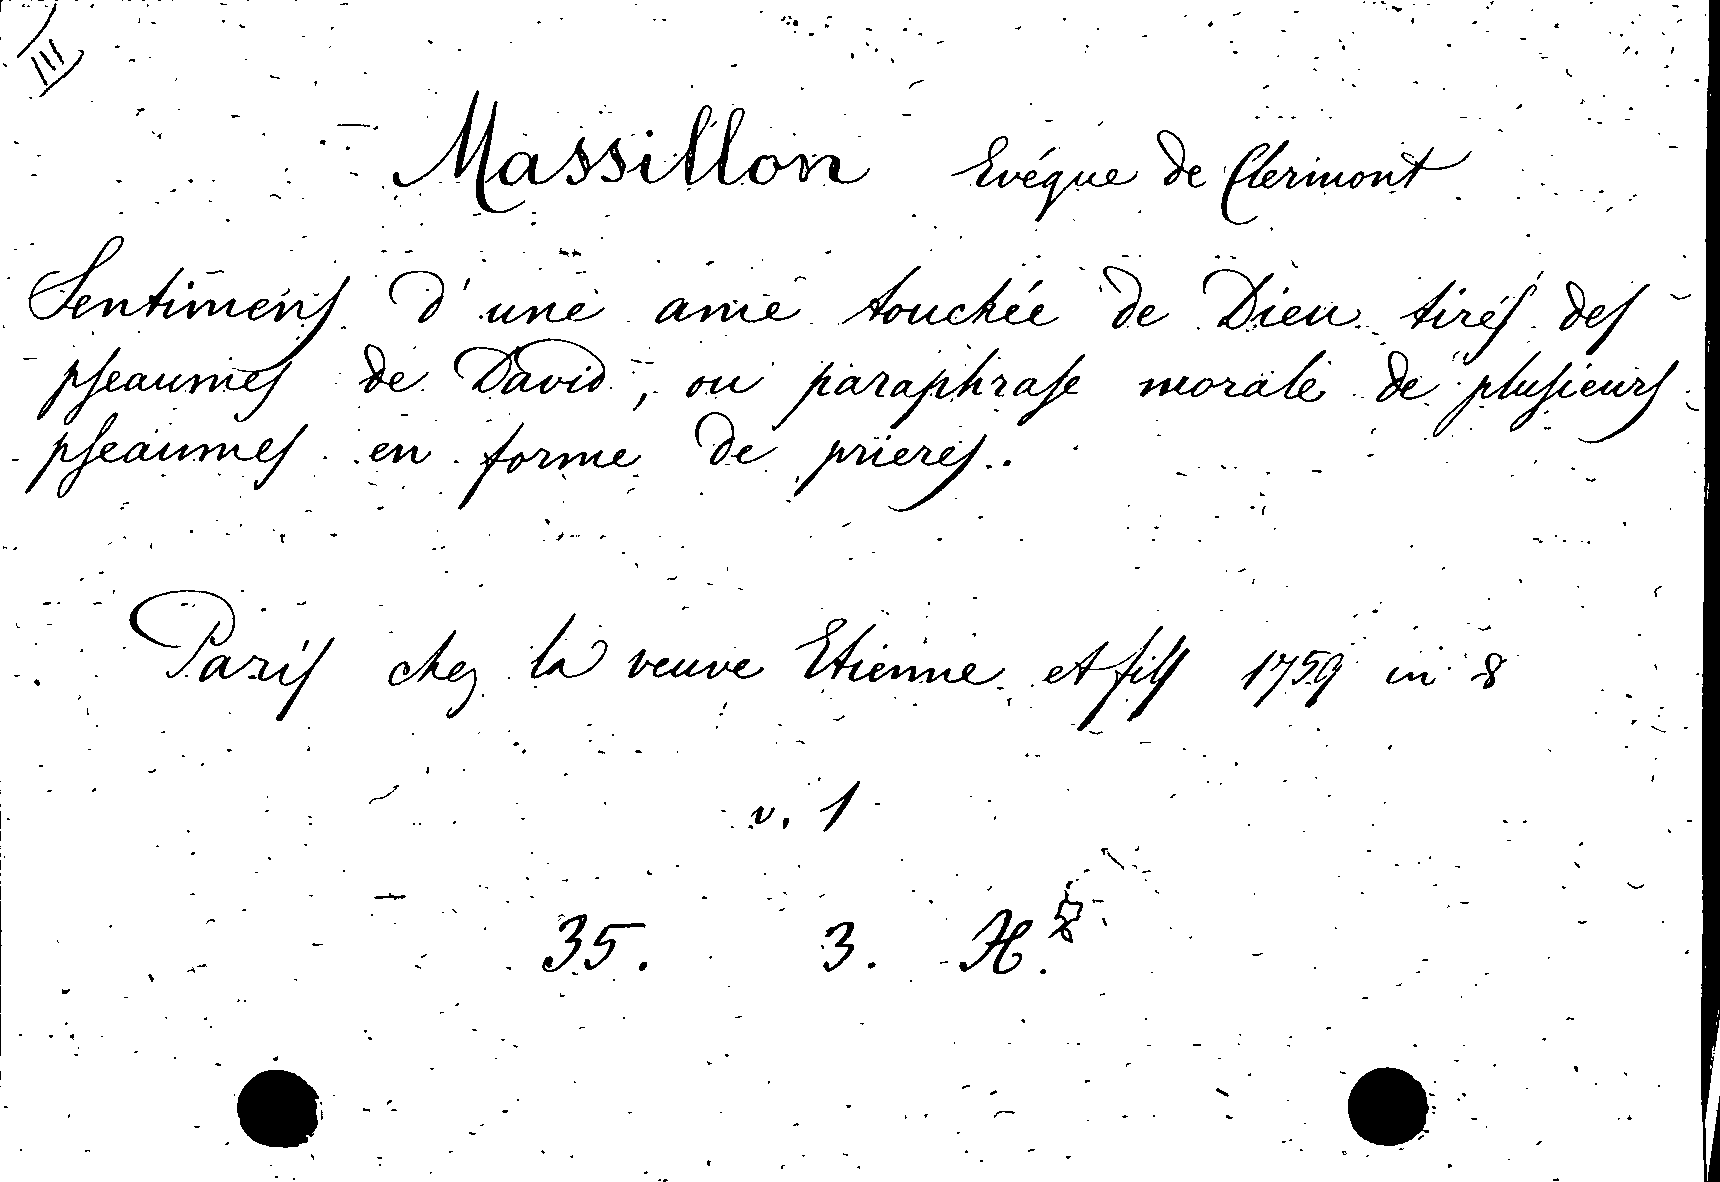 III
Massillon Evéque de Clermont
Sentimens d'une ame touchée de Dieu tirés des
pseaumes de David, ou paraphrase morale de plusieurs
pseaumes en forme de prieres.
Paris chez la veuve Etienne et fils 1759 in 8
v. 1
35. 3. H.